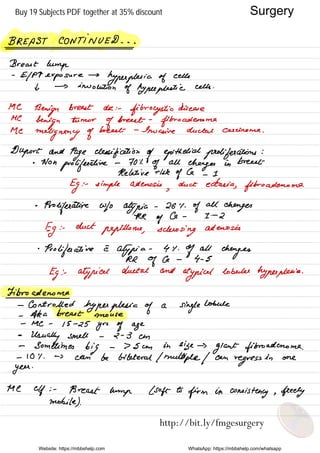 Buy 19 Subjects PDF together at 35% discount
Surgery
BREAST CONTINUED...
Breast lump
- E/PT exposure → hyperplasia of cells
↓ → involution of hyperplastic cells.
MC Benign breast dx :- fibrocystic disease
MC benign tumor of breast - fibroadenoma
MC malignancy of breast - Invasive ductal carcinoma.
Duport and Page classification of epithelial proliferations :
• Non proliferative - 70% of all changes in breast
Relative risk of Ca - 1
Eg :- simple adenosis, duct ectasia, fibroadenoma
• Proliferative w/o atypia - 26% of all changes
RR of Ca - 1-2
Eg :- duct papilloma, sclerosing adenosis
• Proliferative c̄ atypia - 4% of all changes
RR of Ca - 4-5
Eg :- atypical ductal and atypical lobular hyperplasia.
Fibroadenoma
- Controlled hyperplasia of a single lobule
- Aka breast mouse
- MC - 15-25 yrs of age
- Usually small - 2-3 cm
- Sometimes big - >5 cm in size → giant fibroadenoma
- 10% → can be bilateral / multiple / can regress in one
year.
MC c/f :- Breast lump (soft to firm in consistency, freely
mobile).
http://bit.ly/fmgesurgery
Website: https://mbbshelp.com
WhatsApp: https://mbbshelp.com/whatsapp